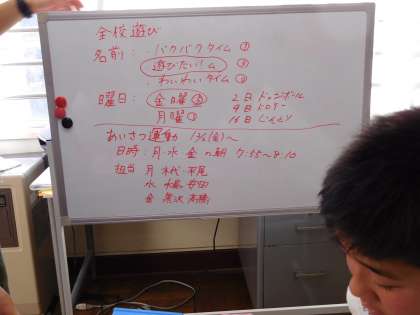 全校遊び
名前: ・バクバクタイム
遊びたいム
・わいわいタイム
曜日: 金曜 2日 ドッジボール
月曜 9日 ドロケー
16日
あいさつ運動
日時: 月・水 金の朝 7:55~8:10
担当 月 平尾
水 安田
金 黒沢 高橋